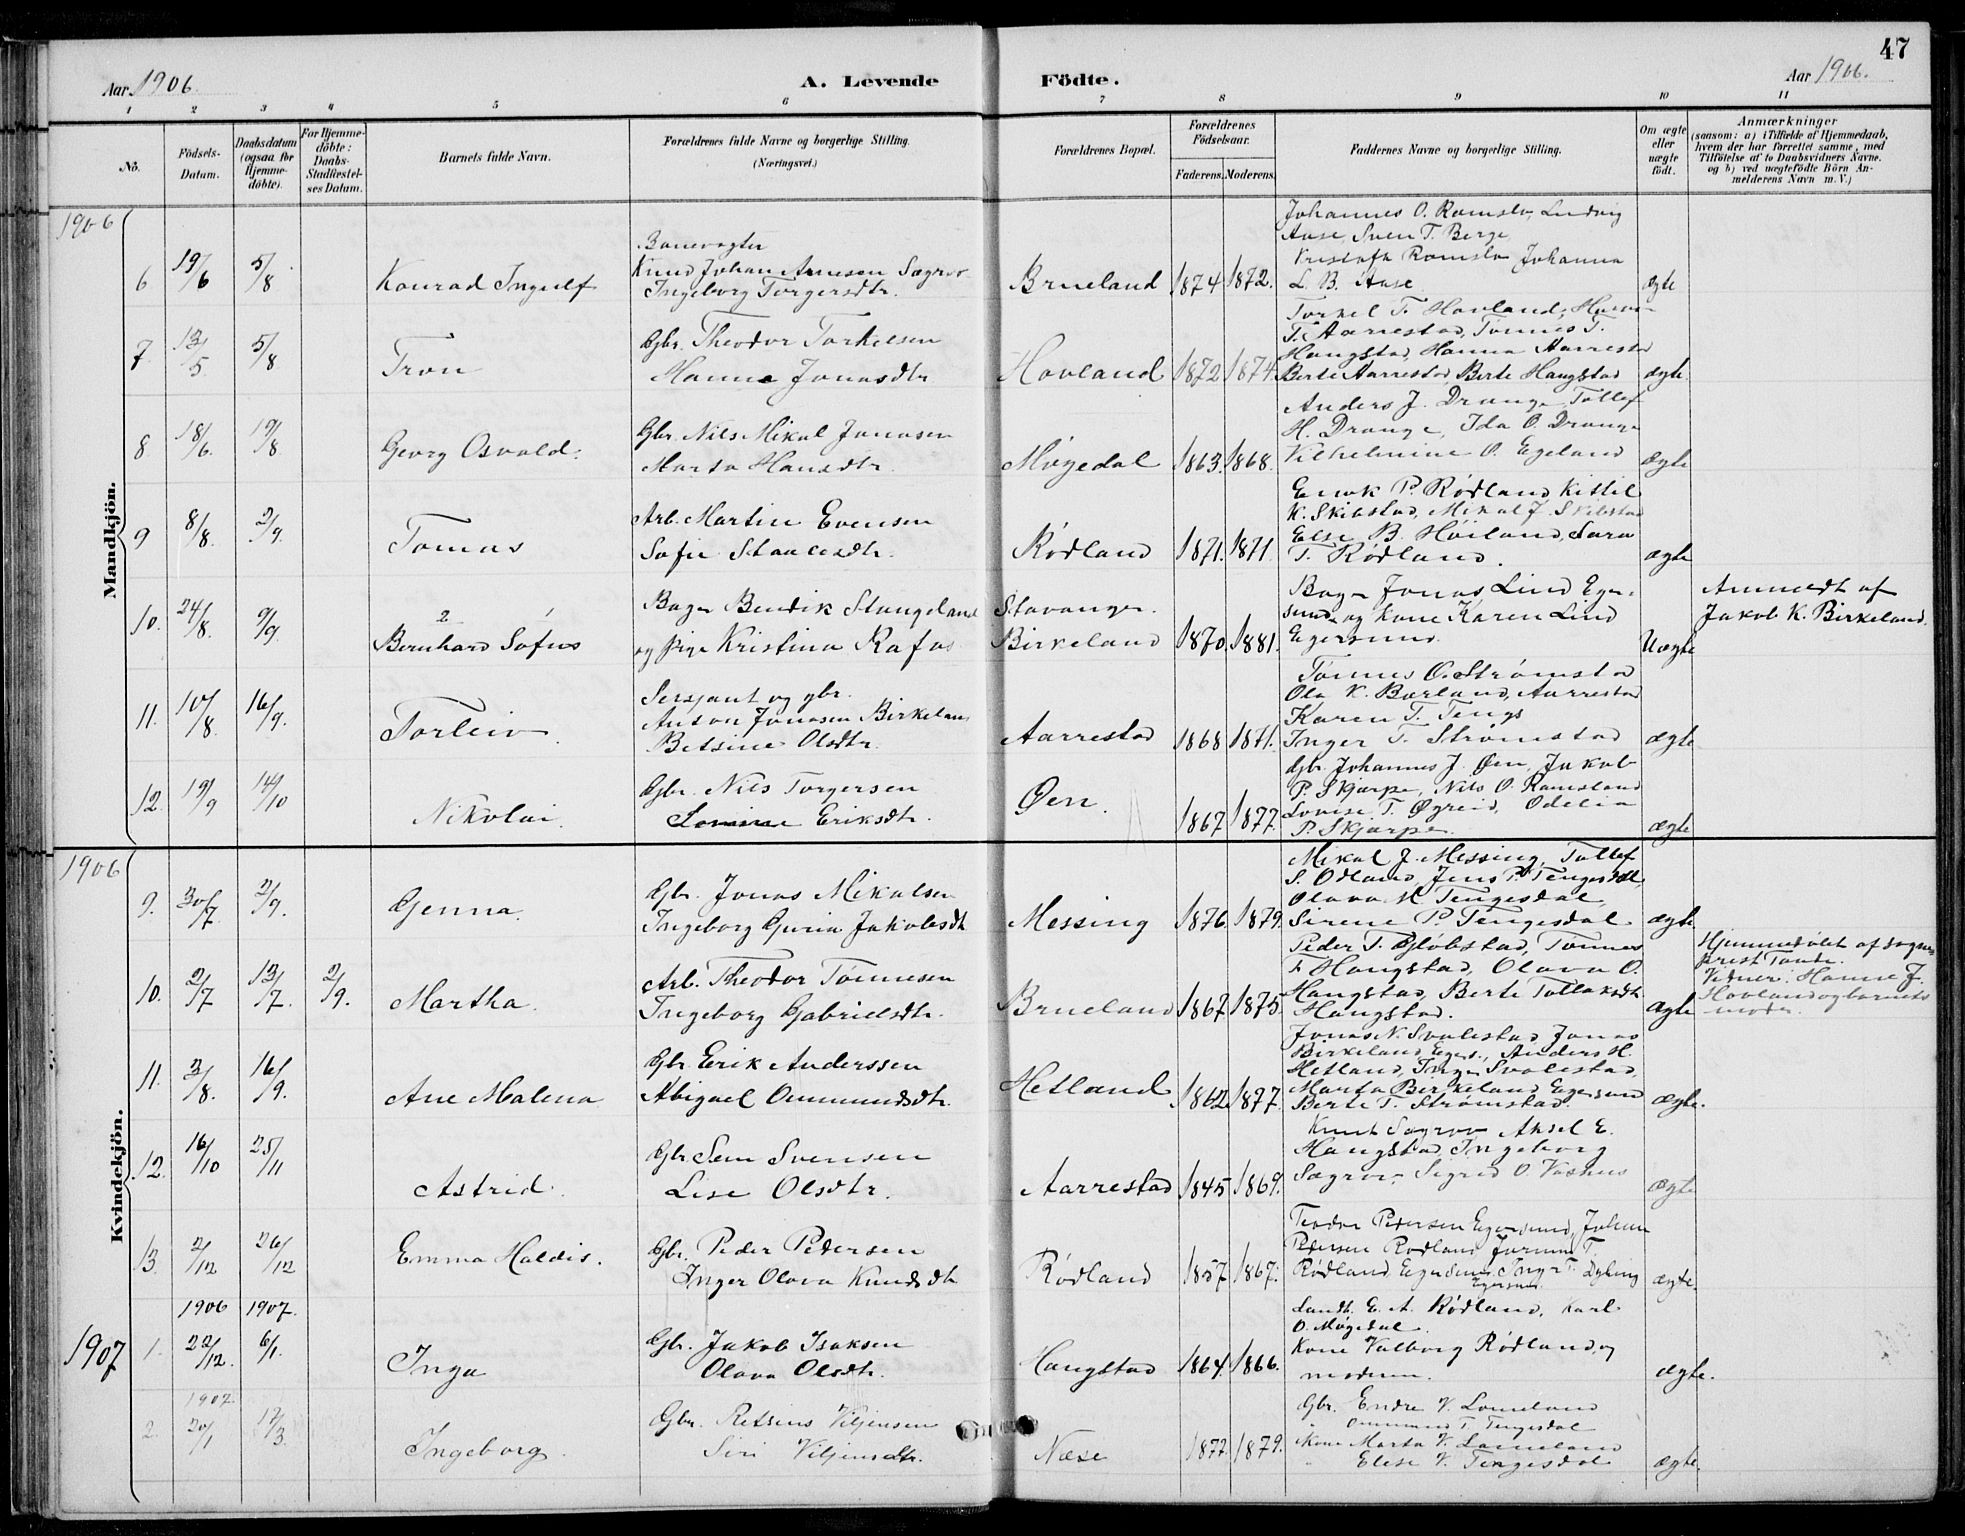 47
Aar 1906.
A. Levende Födte.
Aar 1906.
1 2 3 4 5 6 7 8 9 10 11
No.
Födsels-Datum.
Daabsdatum (ogsaa for Hjemmedöbte).
For Hjemmedöbte: Daabs-Stadfæstelses Datum.
Barnets fulde Navn.
Forældrenes fulde Navne og borgerlige Stilling.
(Næringsvei.)
Forældrenes Bopæl.
Forældrenes Födselsaar.
Faderens. Moderens.
Faddernes Navne og borgerlige Stilling.
Om ægte eller uægte födt.
Anmærkninger
(saasom: a) i Tilfælde af Hjemmedaab, hvem der har forrettet samme, med Tilföielse af to Daabsvidners Navne, og b) ved uægtefödte Börn Anmelderens Navn m. V.)
Mandkjön.
1906
6 19/6 5/8 Konrad Ingulf
Banevogter
Knud Johan Arnesen Sægrov
Ingeborg Torgersdtr.
Brueland 1874 1872.
Johannes O. Ramslo, Ludvig
Aase, Sven T. Berge,
Kristofa Ramslo Johanna
L. B. Aase
ægte
7 13/5 5/8 Tron
Gbr. Theodor Torkelsen
Hanne Jonasdtr
Hovland 1872 1874.
Torkel T. Hovland,
T. Aarrestad, Tønnes T.
Haugstad, Hanna Aarrestad
Berte Aarrestad, Berte Haugstad
ægte.
8 18/6. 19/8. Georg Osvald.
Gbr. Nils Mikal Jonasen
Marta Hansdtr.
Møgedal 1863. 1868.
Anders J. Drange, Tollef
H. Drange, Ida O. Drange
Vilhelmine O. Egeland
ægte
9 8/8. 2/9. Tomas
Arb. Martin Evensen
Sofie
Rødland 1871. 1871.
P. Rødland, Kittil
K. Skibstad, Mikal J. Skibstad
Else B. Høiland, Sara
T. Rødland.
ægte
10. 24/8. 9/9. 2 Bernhard Sofus
Bager Bendik Stangeland
og pige Kristina Rafos
Stavanger.
Birkeland 1870. 1881.
Bager Jonas Lind Eger-
sund og Kone Karen Lind
Egersund.
Uægte
Anmeldt af
Jakob K. Birkeland.
11. 10/8. 16/9. Torleiv.
Sersjant og gbr.
Anton Jonasen Birkeland
Betsine Olsdtr.
Aarrestad 1868 1871.
Tønnes O. Strømstad
Ola K. Barland, Aarrestad
Karen T. Tengs
Inger T. Strømstad
ægte
12. 19/9 14/10 Nikolai.
Gbr. Nils Torgersen
Eriksdtr.
Øen. 1867 1877.
Gbr. Johannes J. Øen, Jakob
P. Skjarpe, Nils O. Ramsland
Lovise T. Øgreid, Odelia
P. Skjarpe.
ægte
Kvindekjön.
1906
9. 30/7 2/9. Genna.
Gbr. Jonas Mikalsen
Ingeborg Guria Jakobsdtr
Messing 1876. 1879.
Mikal J. Messing, Tollef
S. Odland, Jens P. Tengesdal
Olava M. Tengesdal
Sirene P. Tengesdal
ægte
10. 2/7 13/7. 2/9. Martha.
Arb. Theodor Tönnesen
Ingeborg Gabrielsdtr.
Brueland 1867. 1875.
Peder T. Gløbstad, Tønnes
T. Haugstad, Olava O.
Haugstad, Berte Tollaksdtr
Haugstad.
ægte
Hjemmedøbt af sogne-
prest Tande.
Vidner: Hanne J.
Hovland og barnets
moder.
11. 3/8. 16/9. Ane Malena
Gbr Erik Anderssen
Abigael Ommundsdtr.
Hetland 1862. 1877.
Jonas N. Svalestad Jonas
Birkeland, Egers., Anders H.
Hetland, Inger Svalestad,
Marta Birkeland Egersund
Berte T. Strømstad.
ægte.
12. 16/10 25/11 Astrid.
Gbr Sem Svensen
Lise Olsdtr.
Aarrestad 1845 1869.
Knut Sægrov Aksel E.
Haugstad, Ingeborg
Sægrov, Sigrid O.
ægte
13. 2/12 26/12 Emma Haldis.
Gbr. Peder Petersen
Inger Olava Knudsdtr
Rødland 1857 1867.
Teodor Petersen Egersund, Johan
Petersen Rødland T.
Rødland, Egersund, Inger T. Dybing
Egersund
ægte.
1906 1907.
1907 1. 22/12. 6/1. Inga
Gbr. Jakob Isaksen
Olava Olsdtr.
Haugstad 1864. 1866.
Landh. E. A. Rødland, Karl
O. Møgedal.
Kone Valborg Rødland, og
moderen.
ægte.
1907.
2. 20/1 17/3. Ingeborg.
Gbr. Viljensen
Siri Viljensdtr.
Næse 1877. 1879.
Gbr. Endre V. Lomeland
Ommund T. Tengesdal
Kone Marta V. Lomeland
" Elise V. Tengesdal
ægte.